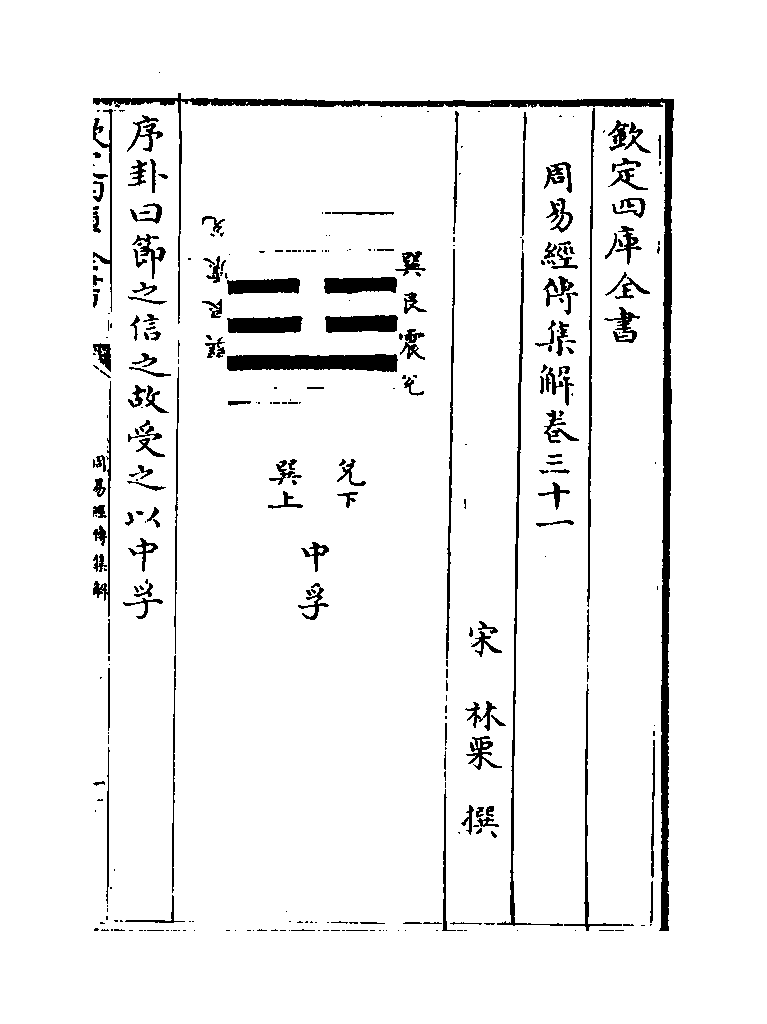 欽定四庫全書
周易經傳集解卷三十一
宋 林栗 撰
巽艮震兌
兌下
巽上
中孚
兌震艮巽
序卦曰節之信之故受之以中孚
周易經傳集解